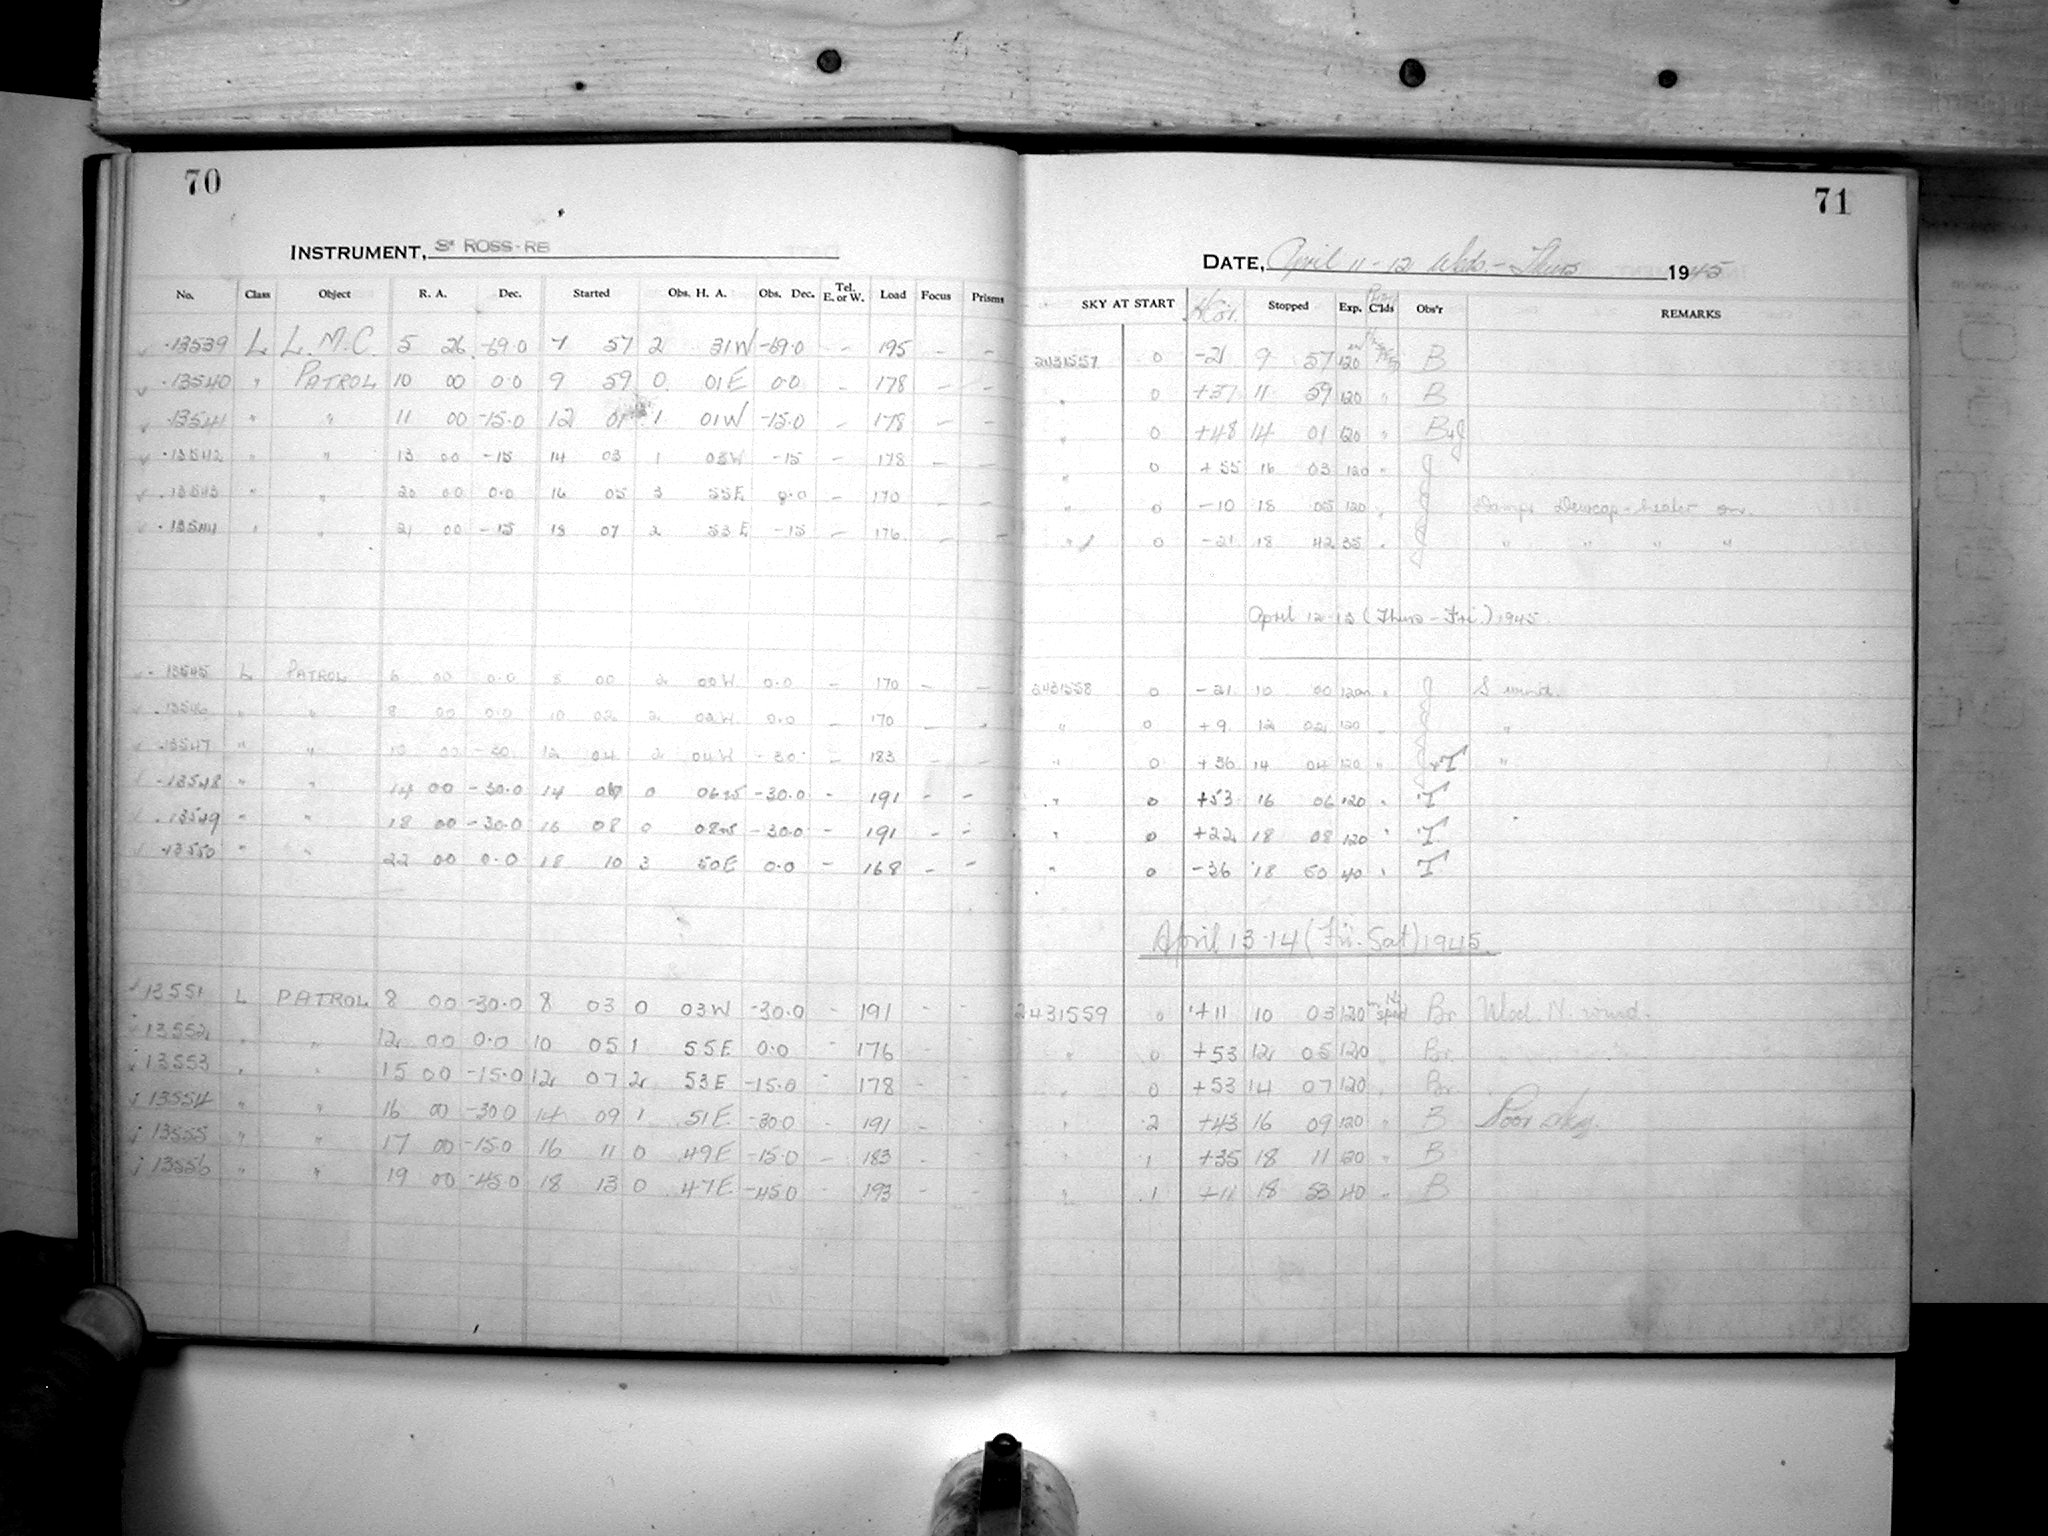 70
71
INSTRUMENT, 3" ROSS-RB
DATE, April 11-12 Weds.-Thurs 1945
No. Class Object R. A. Dec. Started Obs. H. A. Obs. Dec. Tel. E. or W. Load Focus Prisms SKY AT START Stopped Exp. C'lds Obs'r REMARKS
13539 L L.M.C. 5 26 -69.0 7 57 2 31W -69.0 - 195 - - 2431557 0 -21 9 57 120 B
13540 " PATROL 10 00 0.0 9 59 0 01E 0.0 - 178 - - " 0 +37 11 59 120 " B
13541 " " 11 00 -15.0 12 01 1 01W -15.0 - 178 - - " 0 +48 14 01 120 " B+J
13542 " " 13 00 -15 14 03 1 03W -15 - 178 - - " 0 +55 16 03 120 " J
13543 " " 20 00 0.0 16 05 3 55E 0.0 - 170 - - " 0 -10 18 05 120 " J Damp. Dewcap-heater on.
13544 " " 21 00 -15 18 07 2 53E -15 - 176 - - " 0 -21 18 42 35 " J " " " "
April 12-13 (Thurs-Fri.) 1945.
13545 L PATROL 6 00 0.0 8 00 2 00W 0.0 - 170 - - 2431558 0 -21 10 00 120 " J S wind.
13546 " " 8 00 0.0 10 02 2 02W 0.0 - 170 - - " 0 +9 12 02 120 " J "
13547 " " 10 00 -30 12 04 2 04W -30 - 183 - - " 0 +36 14 04 120 " J+T "
13548 " " 14 00 -30.0 14 06 0 06W -30.0 - 191 - - " 0 +53 16 06 120 " T
13549 " " 18 00 -30.0 16 08 0 08W -30.0 - 191 - - " 0 +22 18 08 120 " T
13550 " " 22 00 0.0 18 10 3 50E 0.0 - 168 - - " 0 -36 18 50 40 " T
April 13-14 (Fri.-Sat) 1945.
13551 L PATROL 8 00 -30.0 8 03 0 03W -30.0 - 191 - - 2431559 0 +11 10 03 120 Br Mod. N. wind.
13552 " " 12 00 0.0 10 05 1 55E 0.0 - 176 - - " 0 +53 12 05 120 " Br.
13553 " " 15 00 -15.0 12 07 2 53E -15.0 - 178 - - " 0 +53 14 07 120 " Br
13554 " " 16 00 -30.0 14 09 1 51E -30.0 - 191 - - " 2 +43 16 09 120 " B Poor sky.
13555 " " 17 00 -15.0 16 11 0 49E -15.0 - 183 - - " 1 +35 18 11 120 " B
13556 " " 19 00 -45.0 18 13 0 47E -45.0 - 193 - - " 1 +11 18 53 40 " B